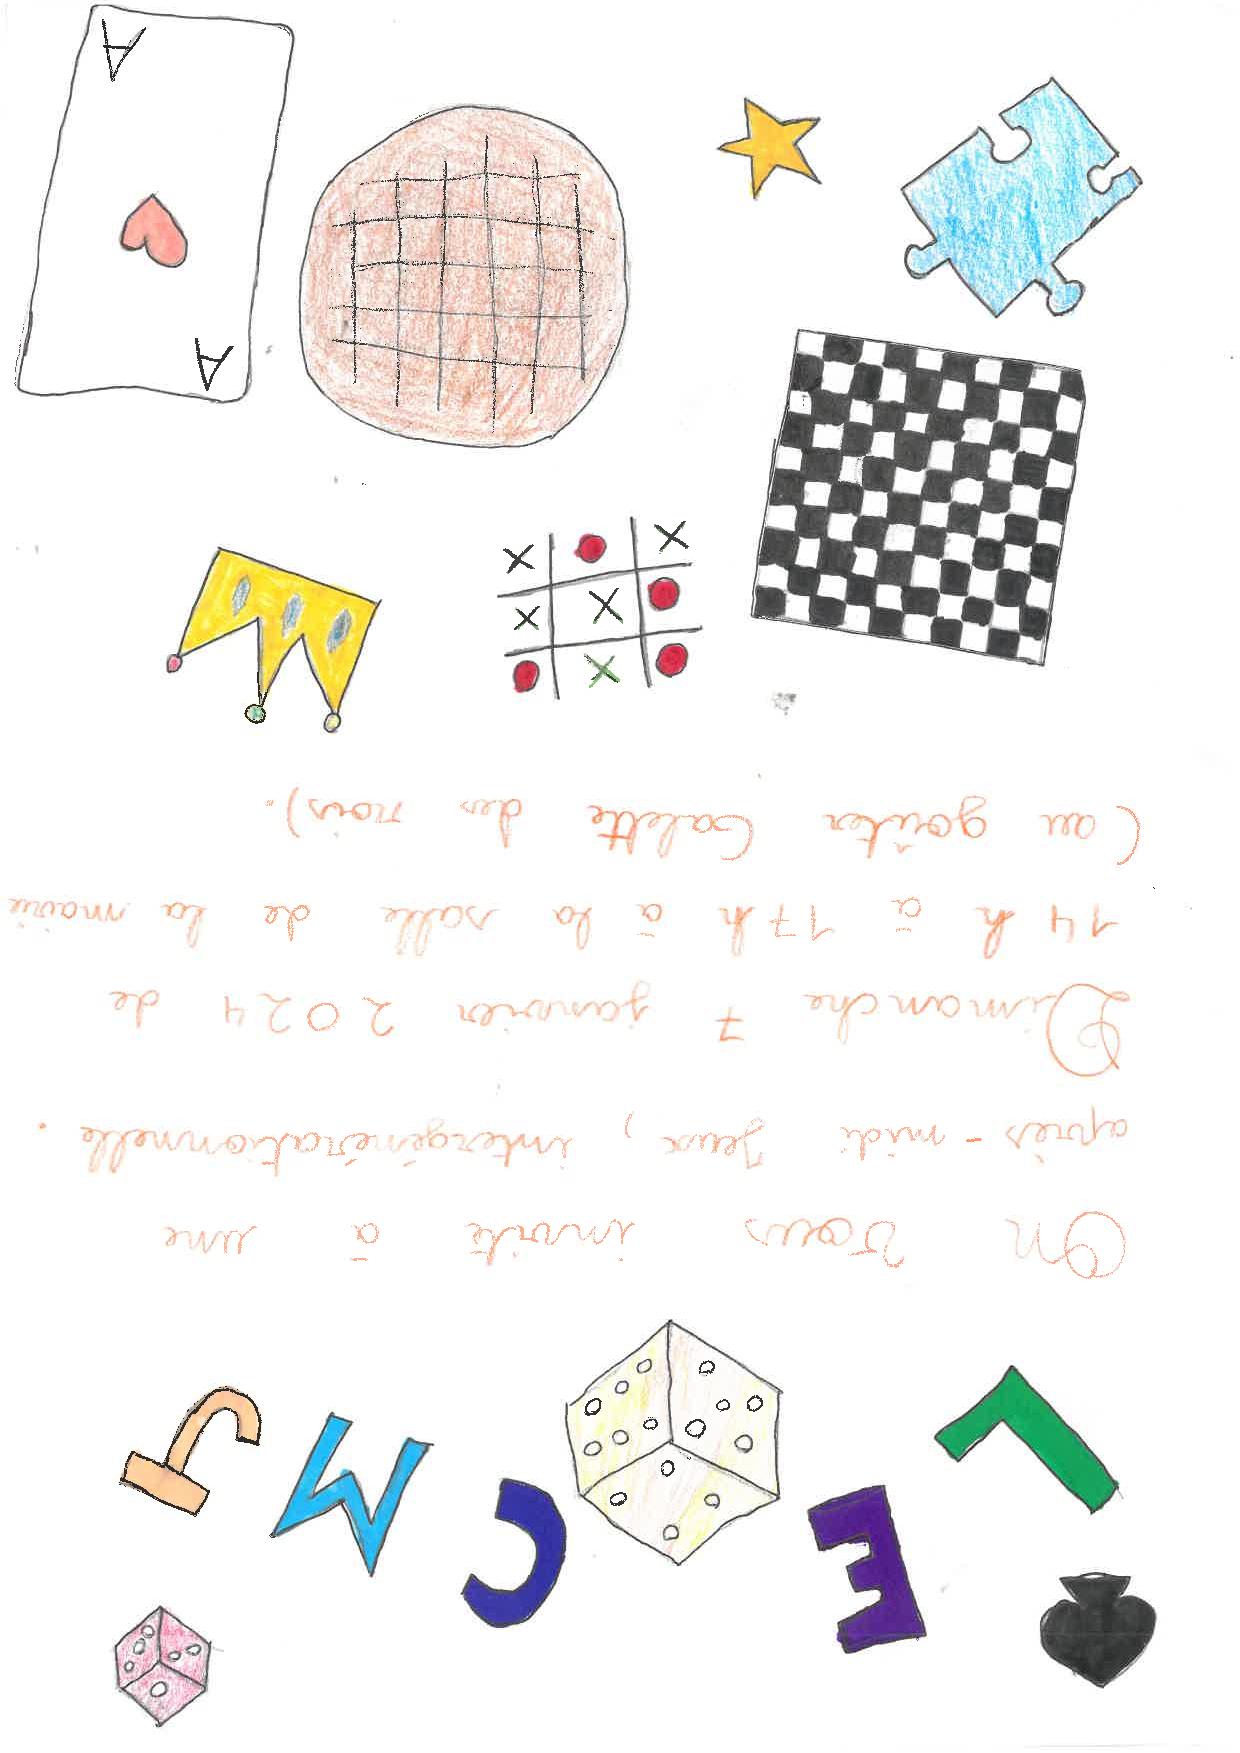 LE CMJ
On Vous invite à une
après-midi Jeux, intergénérationnelle.
Dimanche 7 janvier 2024 de
14 h à 17 h à la salle de la mairie
(au goûter Galette des rois).
A
A